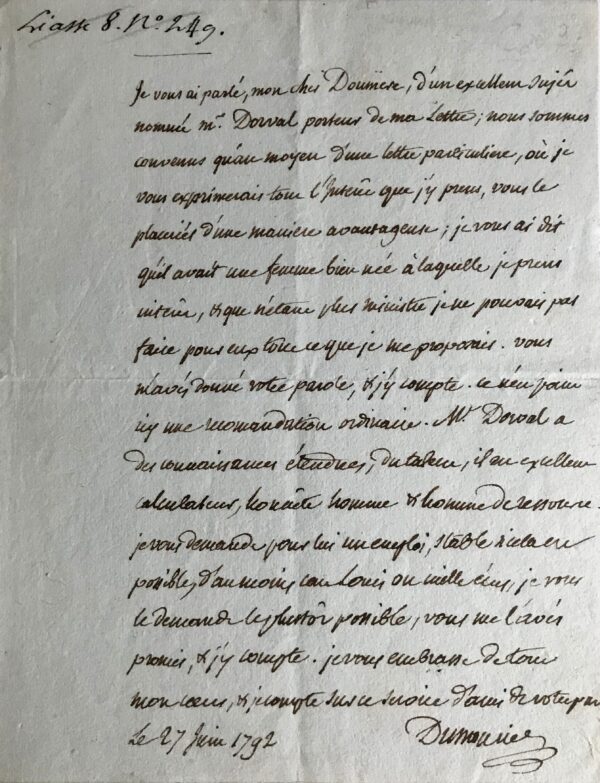 Liasse 8. N° 249.
Je vous ai parlé, mon cher Doumerc, d'un excellent sujet
nommé mr. Dorval porteur de ma Lettre; nous sommes
convenus qu'au moyen d'une lettre particuliere, où je
vous exprimerais tout l'Interêt que j'y prens, vous le
placeriés d'une maniere avantageuse; je vous ai dit
qu'il avait une femme bien née à laquelle je prens
interêt, & que n'étant plus ministre je ne pouvais pas
faire pour eux tout ce que je me proposais. vous
m'avés donné votre parole, & j'y compte. ce n'est point
icy une recomandation ordinaire. Mr. Dorval a
des connaissances étendues, du talent, il est excellent
calculateur, honnête homme & homme de ressource.
je vous demande pour lui un emploi, stable si cela est
possible, d'au moins cent Louis ou mille écus, je vous
le demande le plustôt possible, vous me l'avés
promis, & j'y compte. je vous embrasse de tout
mon coeur, & je compte sur ce service d'ami de votre part
Le 27 Juin 1792
Dumouriez